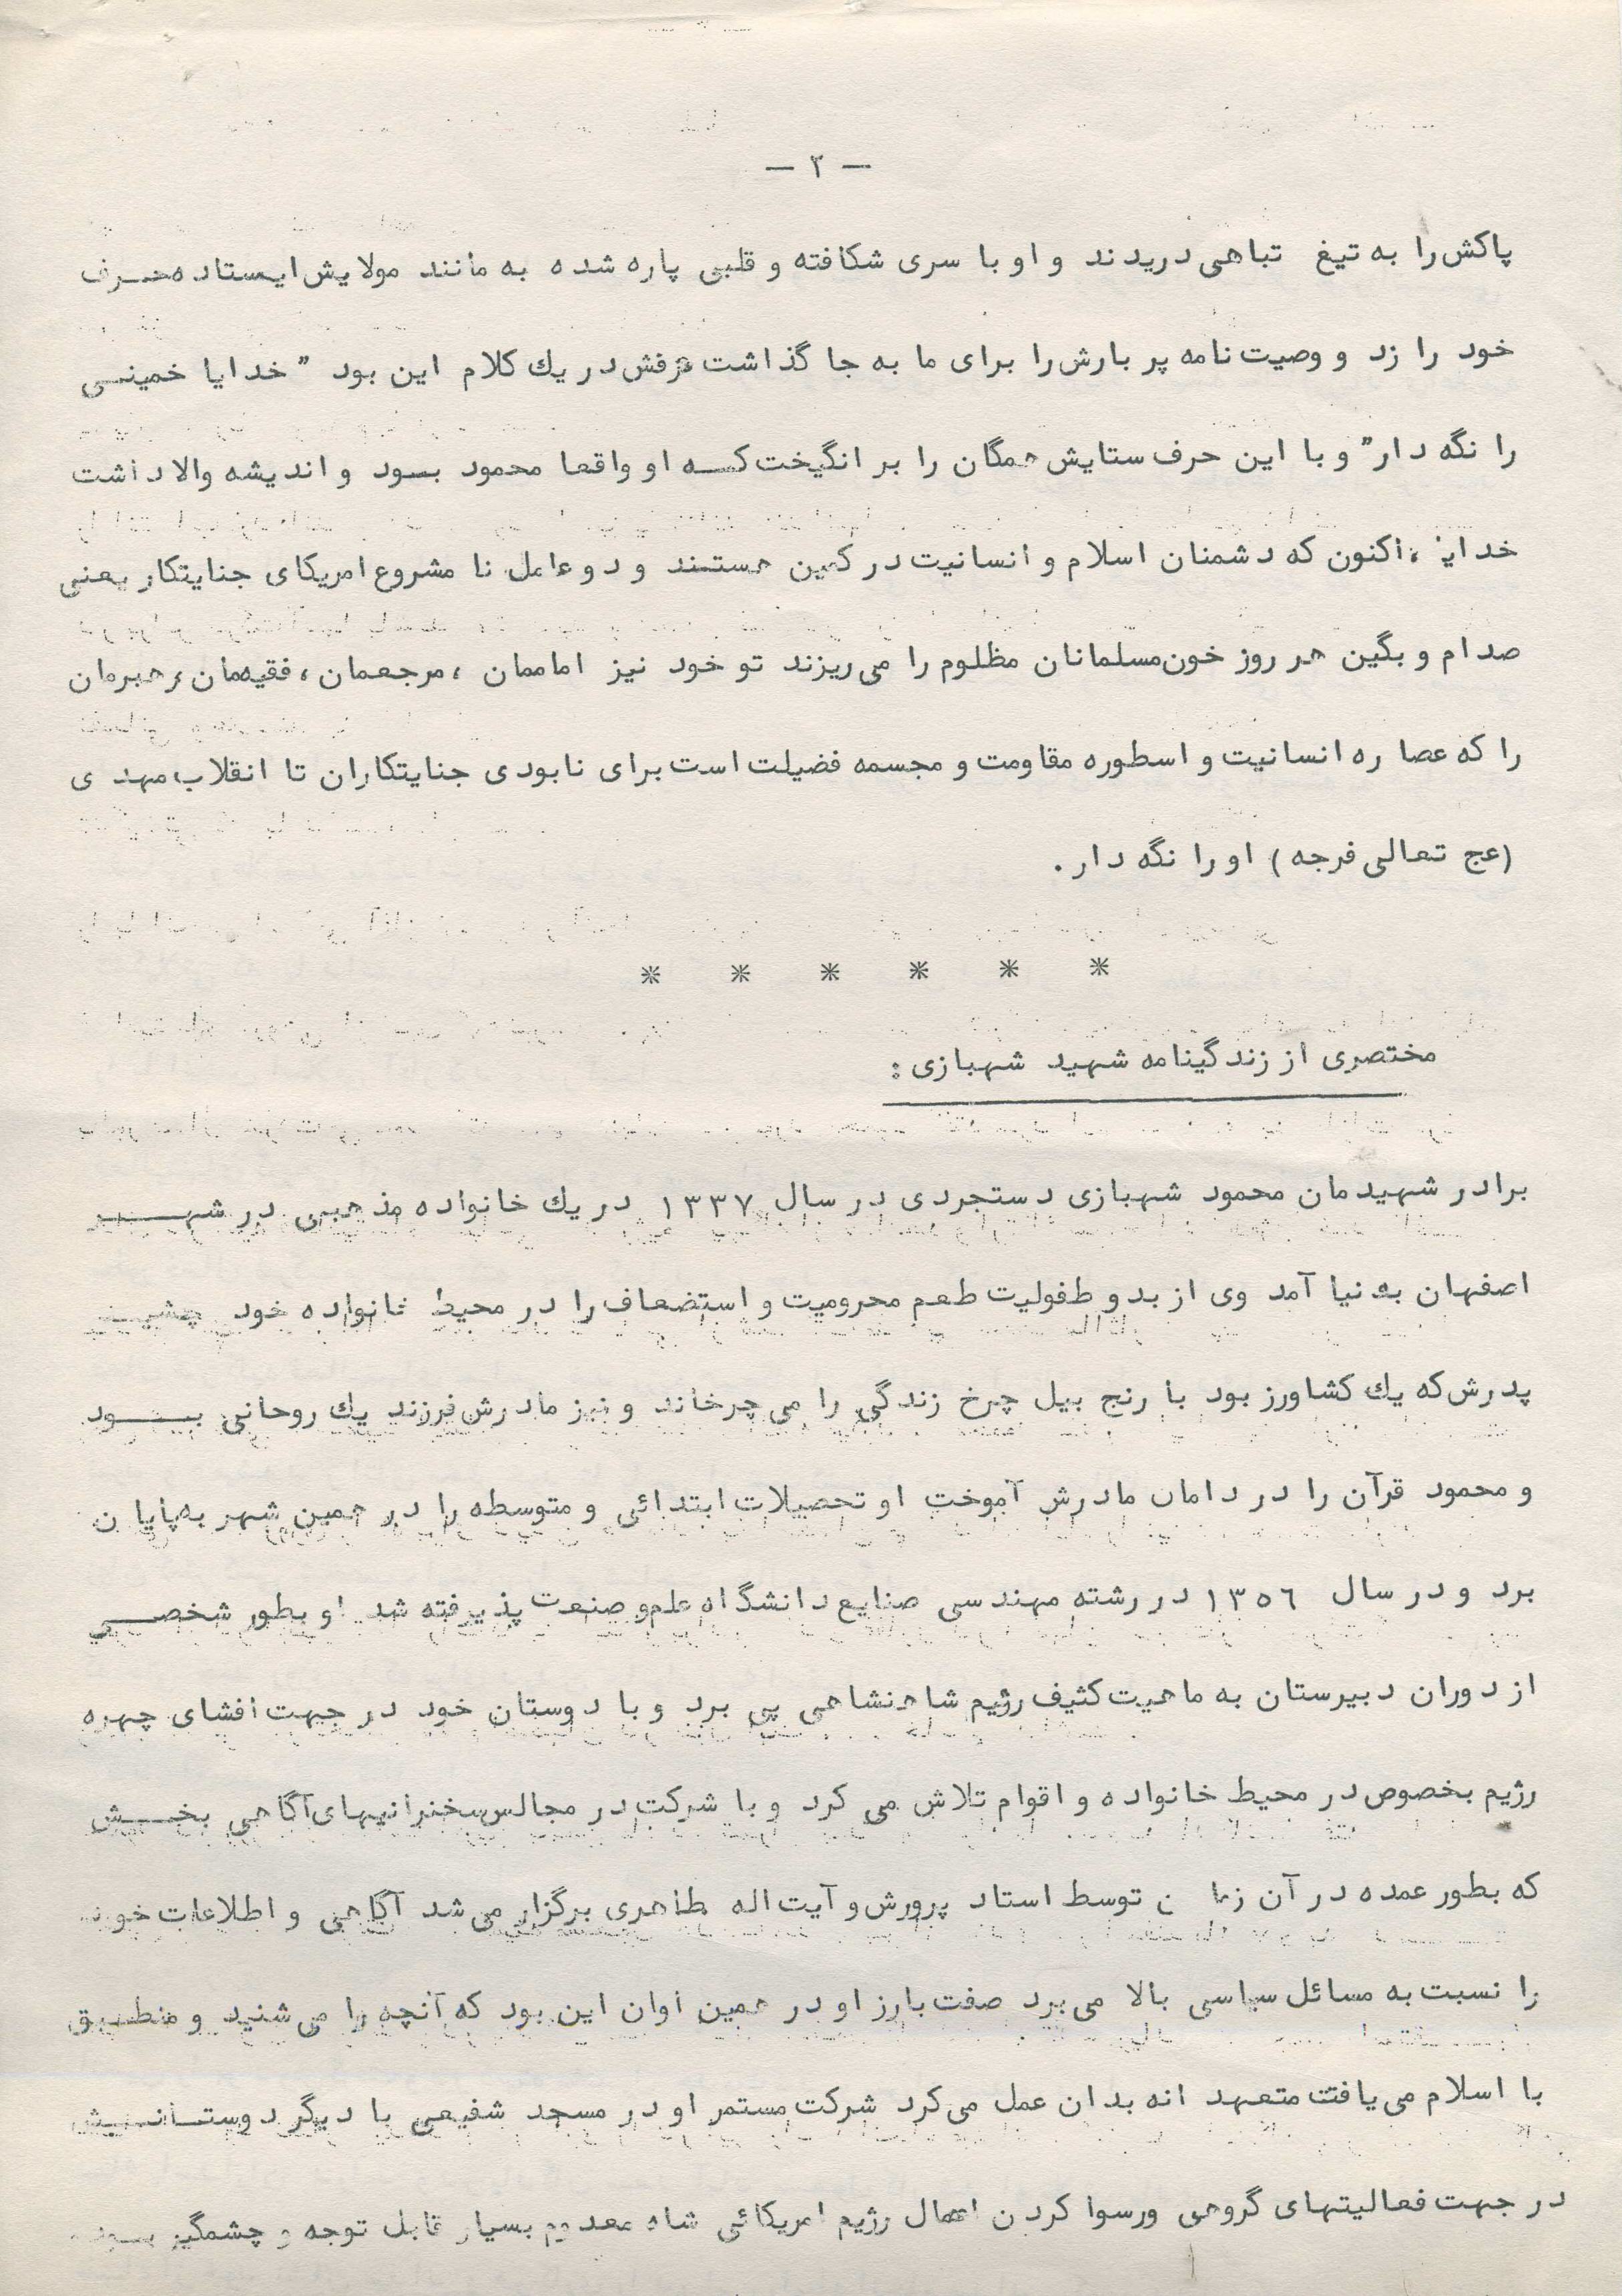 — ٢ —
پاکش را به تیغ تباهی دریدند و او با سری شکافته و قلبی پاره شده به مانند مولایش ایستاده حرف
خود را زد و وصیت نامه پر بارش را برای ما به جا گذاشت حرفش در یك کلام این بود " خدایا خمینی
را نگه دار" و با این حرف ستایش همگان را بر انگیخت که او واقعا محمود بود و اندیشه والا داشت
خدایا ، اکنون که دشمنان اسلام و انسانیت در کمین هستند و دو عامل نا مشروع امریکای جنایتکار یعنی
صدام و بگین هر روز خون مسلمانان مظلوم را می ریزند تو خود نیز اماممان ، مرجعمان ، فقیهمان ، رهبرمان
را که عصاره انسانیت و اسطوره مقاومت و مجسمه فضیلت است برای نابودی جنایتکاران تا انقلاب مهدی
(عج تعالی فرجه) او را نگه دار .
* * * * * *
مختصری از زندگینامه شهید شهبازی :
برادر شهیدمان محمود شهبازی دستجردی در سال ١٣٣٧ در یك خانواده مذهبی در شهر
اصفهان به نیا آمد وی از بدو طفولیت طعم محرومیت و استضعاف را در محیط خانواده خود چشید
پدرش که یك کشاورز بود با رنج بیل چرخ زندگی را می چرخاند و نیز مادرش فرزند یك روحانی بود
و محمود قرآن را در دامان مادرش آموخت او تحصیلات ابتدائی و متوسطه را در همین شهر به پایان
برد و در سال ١٣٥٦ در رشته مهندسی صنایع دانشگاه علم و صنعت پذیرفته شد او بطور شخصی
از دوران دبیرستان به ماهیت کثیف رژیم شاهنشاهی پی برد و با دوستان خود در جهت افشای چهره
رژیم بخصوص در محیط خانواده و اقوام تلاش می کرد و با شرکت در مجالس سخنرانیهای آگاهی بخش
که بطور عمده در آن زمان توسط استاد پرورش و آیت اله طاهری برگزار می شد آگاهی و اطلاعات خود
را نسبت به مسائل سیاسی بالا می برد صفت بارز او در همین اوان این بود که آنچه را می شنید و منطبق
با اسلام می یافت متعهد انه بدان عمل می کرد شرکت مستمر او در مسجد شفیعی با دیگر دوستانش
در جهت فعالیتهای گروهی ورسوا کردن اعمال رژیم امریکائی شاه معدوم بسیار قابل توجه و چشمگیر بود